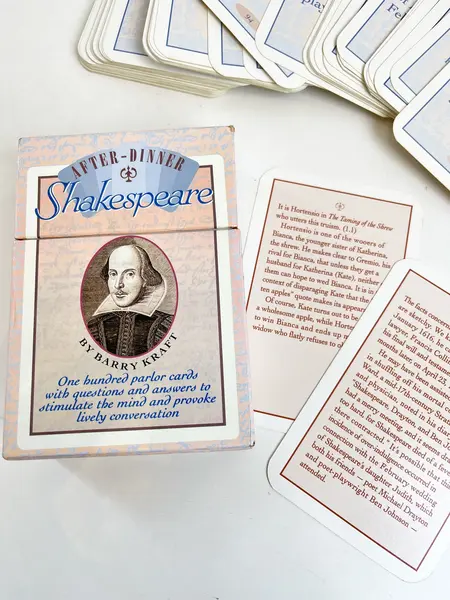 AFTER-DINNER
Shakespeare
BY BARRY KRAFT
One hundred parlor cards
with questions and answers to
stimulate the mind and provoke
lively conversation
94
play
It is Hortensio in The Taming of the Shrew
who utters this truism. (1.1)
Hortensio is one of the wooers of
Bianca, the younger sister of Katherina,
the shrew. He makes clear to Gremio, his
rival for Bianca, that unless they get a
husband for Katherina (Kate), neither
them can hope to wed Bianca. It is in
context of disparaging Kate that the
ten apples" quote makes its appear
Of course, Kate turns out to be
a wholesome apple, while Horte
to win Bianca and ends up
widow who flatly refuses to o
The facts concern
are sketchy. We k
January 1616, he
lawyer, Francis Colli
his final will and testam
months later, on April 23,
He may have been assisted
in shuffling off his mortal
Ward, a mid-17th-century Stratf
and physician, noted in his dia
"Shakespeare, Drayton, and Ben J
had a merry meeting, and it seems d
too hard, for Shakespeare died of a feve
there contracted." It's possible that thi
incidence of over-indulgence occurred in
connection with the February wedding
of Shakespeare's daughter Judith, which
both his friends — poet Michael Drayton
and poet-playwright Ben Johnson —
attended.